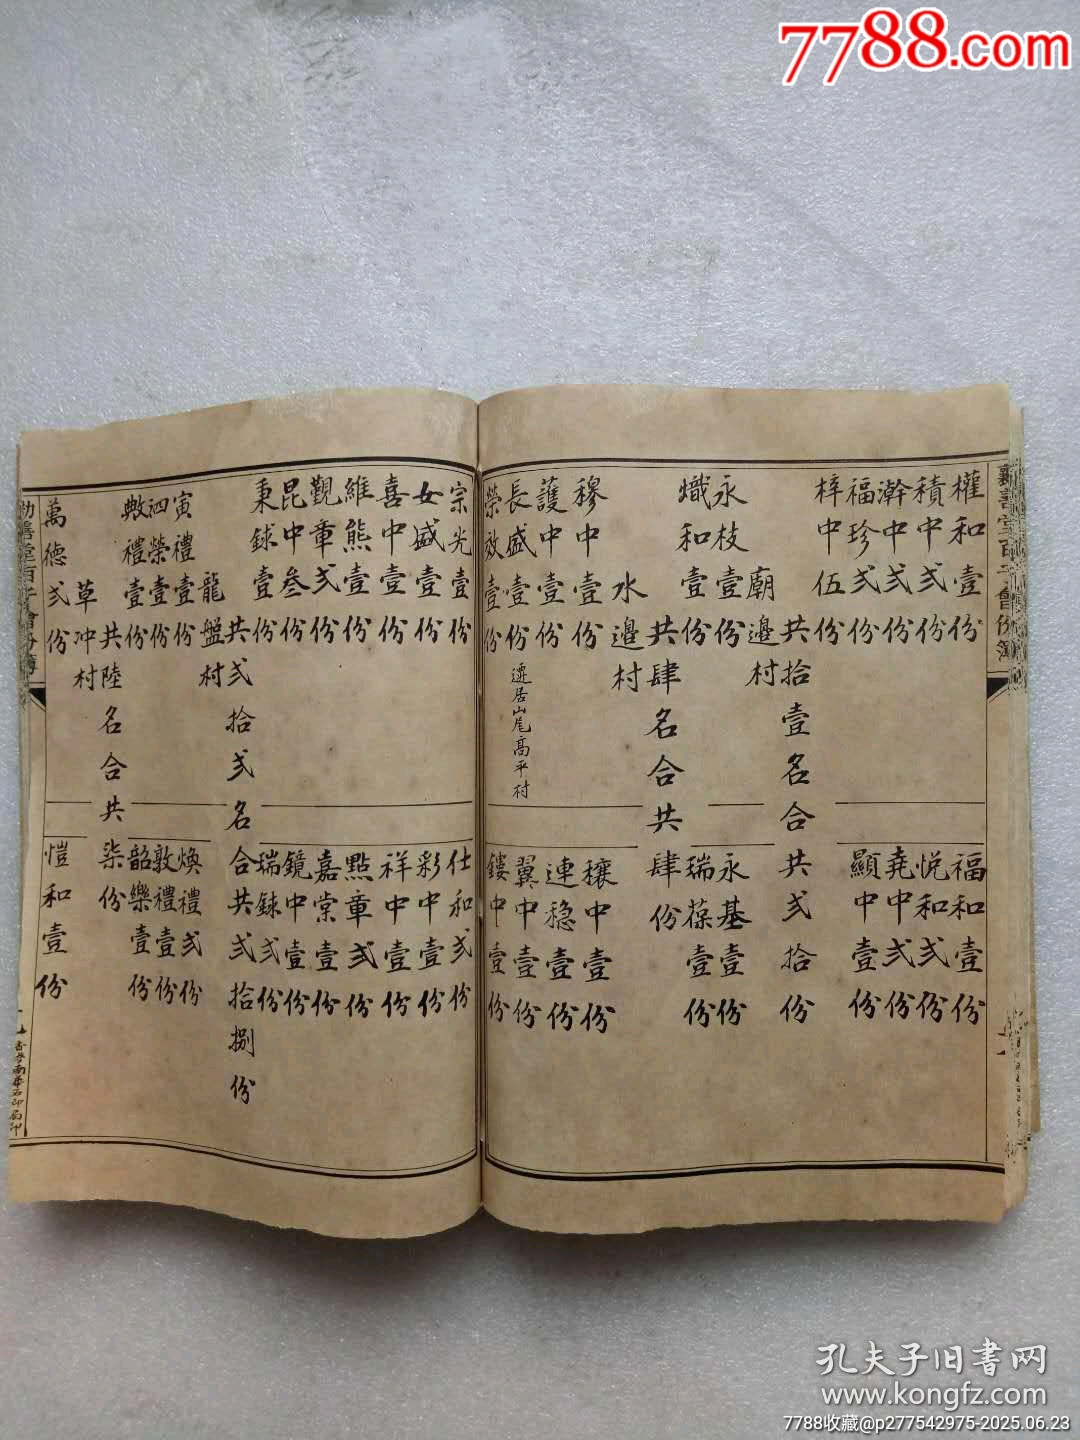 7788.com
權和壹份
積中弍份
瀚中弍份
福珍弍份
梓中伍份
福和壹份
悦和弍份
堯中弍份
顯中壹份
共拾壹名合共弍拾份
廟邊村
永枝壹份
熾和壹份
永基壹份
瑞葆壹份
共肆名合共肆份
水邊村
穆中壹份
護中壹份
長盛壹份
遷居山尾高平村
榮效壹份
穰中壹份
連穩壹份
翼中壹份
鏤中壹份
宗光壹份
女盛壹份
喜中壹份
維熊壹份
觀章弍份
昆中叁份
秉銶壹份
仕和弍份
彩中壹份
祥中壹份
點章弍份
嘉棠壹份
鏡中壹份
瑞銶弍份
共弍拾弍名合共弍拾捌份
龍盤村
寅禮壹份
泗榮壹份
敷禮壹份
煥禮弍份
敦禮壹份
韶樂壹份
共陸名合共柒份
草冲村
萬德弍份
愷和壹份
孔夫子旧書网
www.kongfz.com
7788收藏@p277542975-2025.06.23